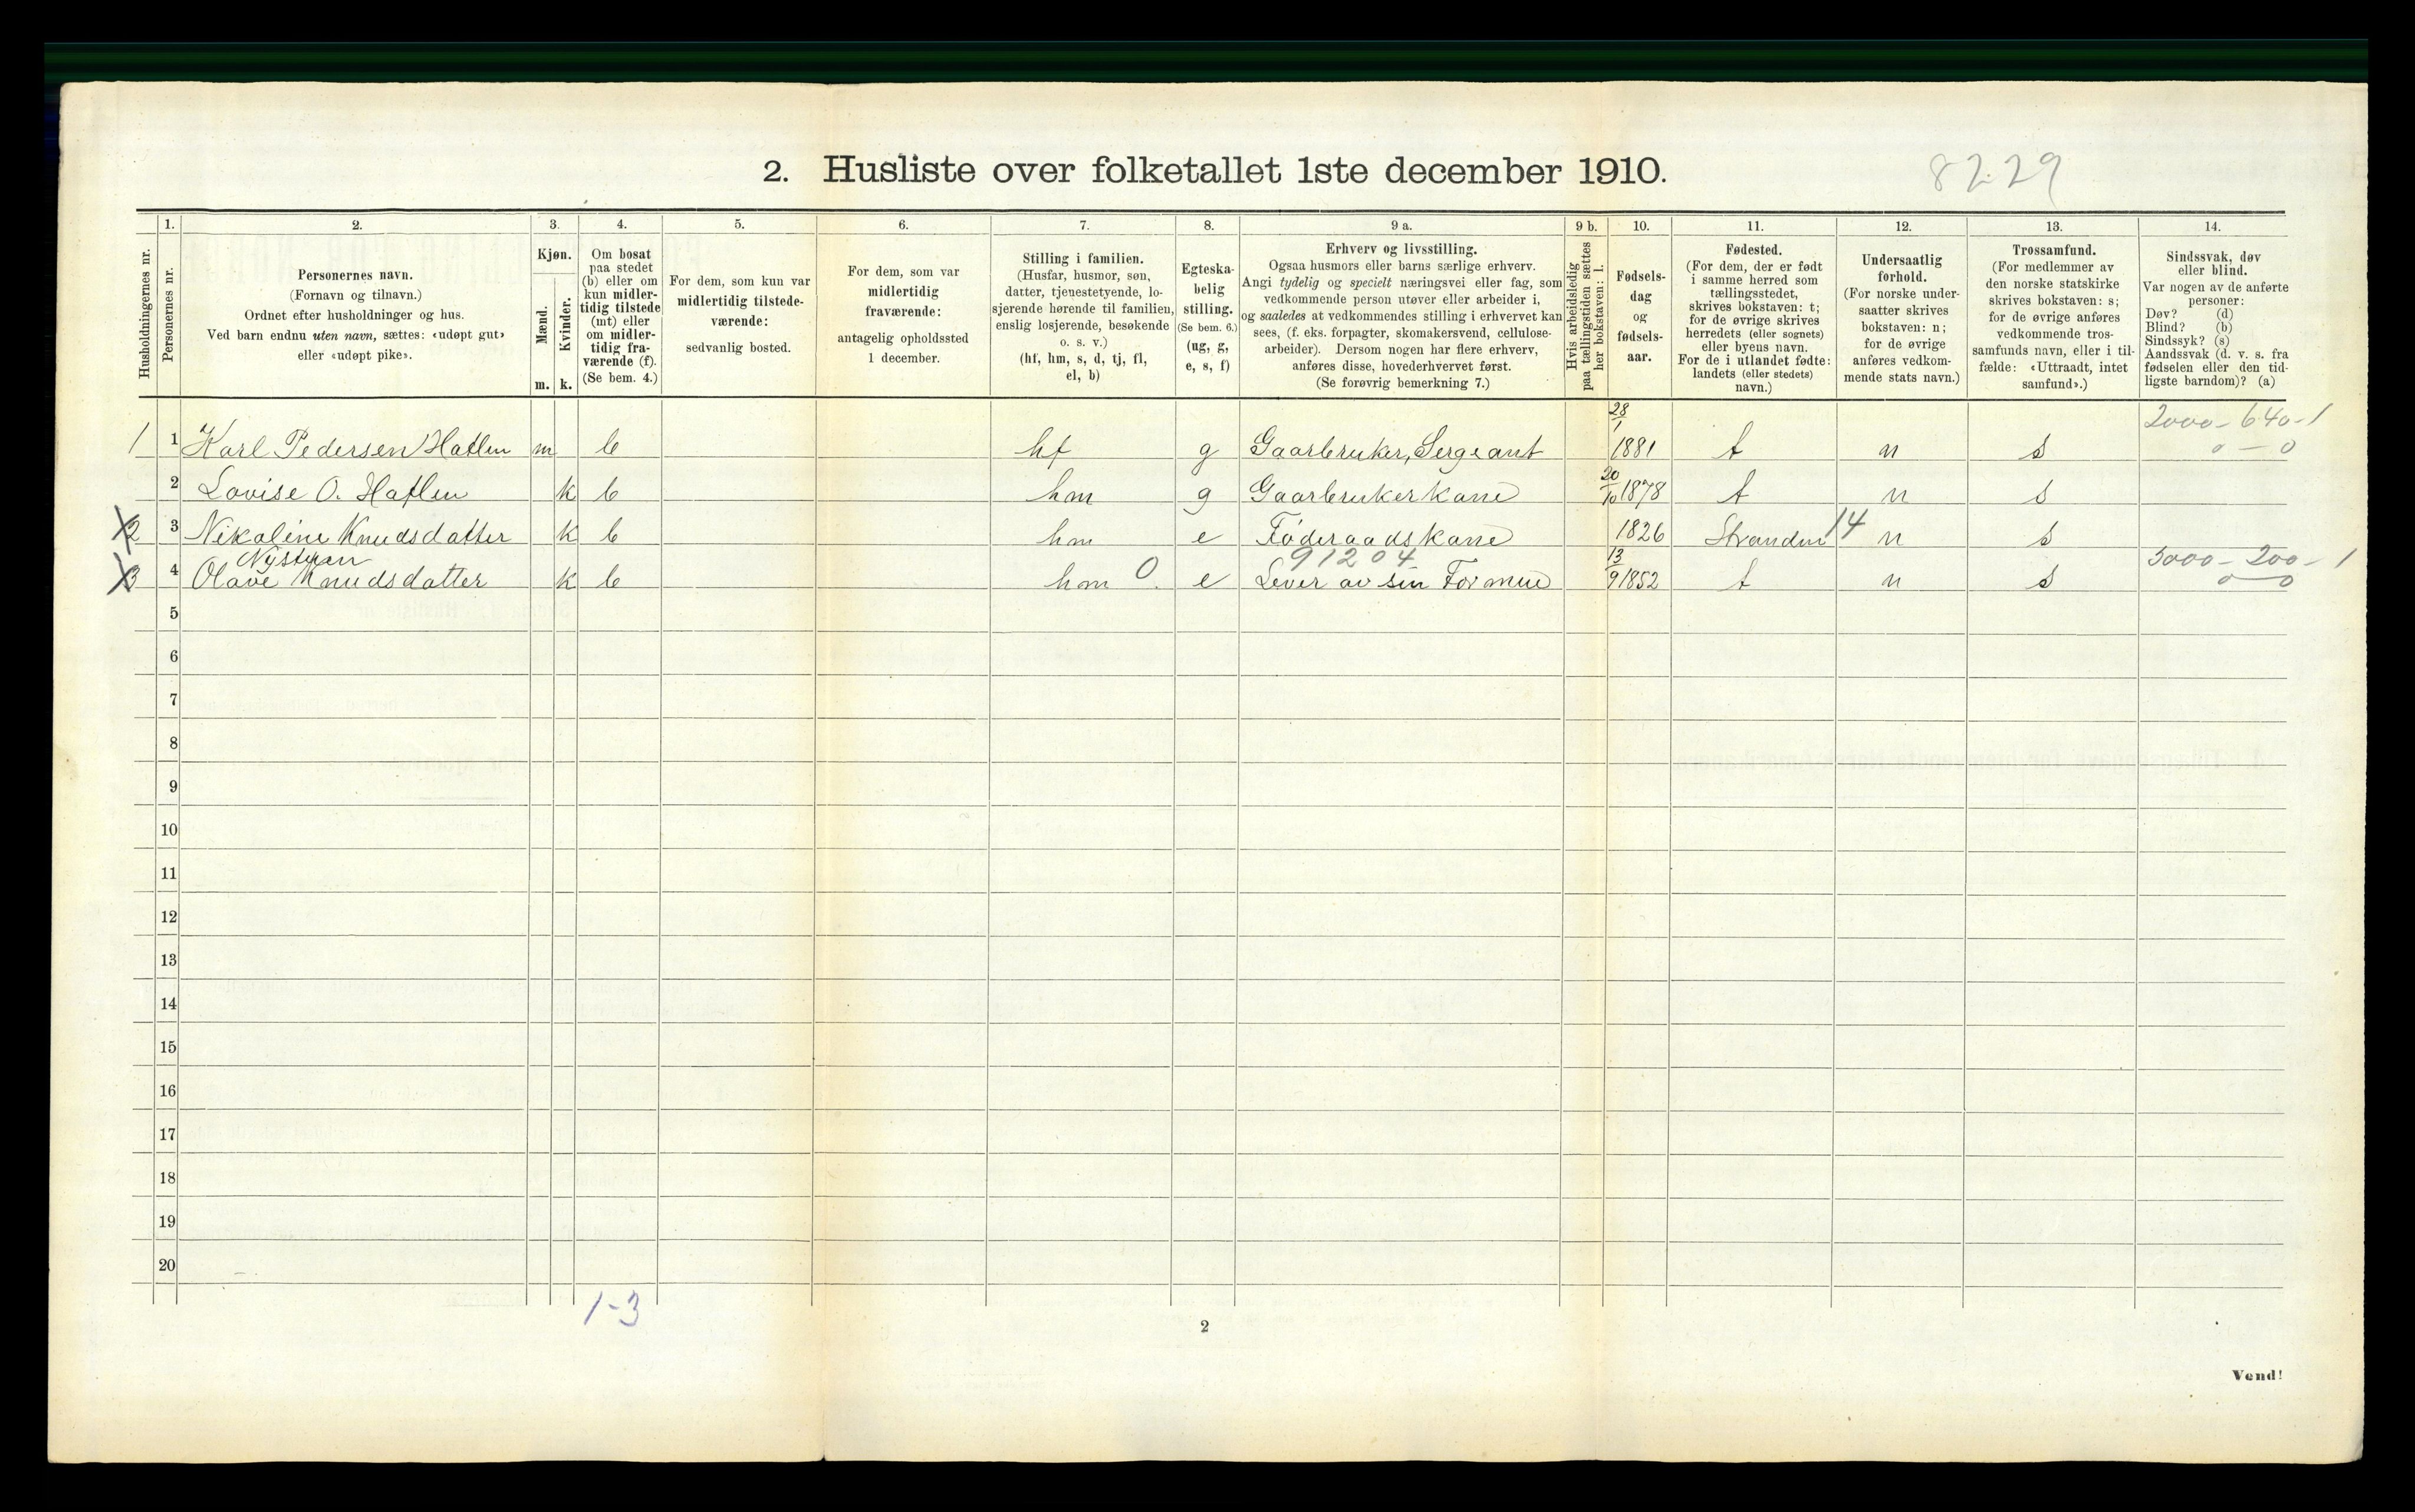 2. Husliste over folketallet 1ste december 1910.
8229
Husholdningernes nr.
1.
Personernes nr.
2.
Personernes navn.
(Fornavn og tilnavn.)
Ordnet efter husholdninger og hus.
Ved barn endnu uten navn, sættes: «udøpt gut»
eller «udøpt pike».
3.
Kjøn.
Mænd.
m.
Kvinder.
k.
4.
Om bosat
paa stedet
(b) eller om
kun midler-
tidig tilstede
(mt) eller
om midler-
tidig fra-
værende (f).
(Se bem. 4.)
5.
For dem, som kun var
midlertidig tilstede-
værende:
sedvanlig bosted.
6.
For dem, som var
midlertidig
fraværende:
antagelig opholdssted
1 december.
7.
Stilling i familien.
(Husfar, husmor, søn,
datter, tjenestetyende, lo-
sjerende hørende til familien,
enslig losjerende, besøkende
o. s. v.)
(hf, hm, s, d, tj, fl,
el, b)
8.
Egteska-
belig
stilling.
(Se bem. 6.)
(ug, g,
e, s, f)
9 a.
Erhverv og livsstilling.
Ogsaa husmors eller barns særlige erhverv.
Angi tydelig og specielt næringsvei eller fag, som
vedkommende person utøver eller arbeider i,
og saaledes at vedkommendes stilling i erhvervet kan
sees, (f. eks. forpagter, skomakersvend, cellulose-
arbeider). Dersom nogen har flere erhverv,
anføres disse, hovederhvervet først.
(Se forøvrig bemerkning 7.)
9 b.
Hvis arbeidsledig
paa tællingstiden sættes
her bokstaven: l.
10.
Fødsels-
dag
og
fødsels-
aar.
11.
Fødested.
(For dem, der er født
i samme herred som
tællingsstedet,
skrives bokstaven: t;
for de øvrige skrives
herredets (eller sognets)
eller byens navn.
For de i utlandet fødte:
landets (eller stedets)
navn.)
12.
Undersaatlig
forhold.
(For norske under-
saatter skrives
bokstaven: n;
for de øvrige
anføres vedkom-
mende stats navn.)
13.
Trossamfund.
(For medlemmer av
den norske statskirke
skrives bokstaven: s;
for de øvrige anføres
vedkommende tros-
samfunds navn, eller i til-
fælde: «Uttraadt, intet
samfund».)
14.
Sindssvak, døv
eller blind.
Var nogen av de anførte
personer:
Døv? (d)
Blind? (b)
Sindssyk? (s)
Aandssvak (d. v. s. fra
fødselen eller den tid-
ligste barndom)? (a)
1 1 Karl Pedersen Hatlen m b hf g Gaarbruker, Sergeant 28/1 1881 t n s 2000 - 640 - 1
0 - 0
2 Lovise O. Hatlen k b hm g Gaarbrukerkone 20/10 1878 t n s
2 3 Nikoline Knudsdatter k b hm e Føderaadskone 1826 Stranden 14 n s
91204
3 4 Olave Knudsdatter k b hm 0 e Lever av sin Formue 13/9 1852 t n s 3000 - 200 - 1
0 - 0
5
6
7
8
9
10
11
12
13
14
15
16
17
18
19
20
1-3
2
Vend!